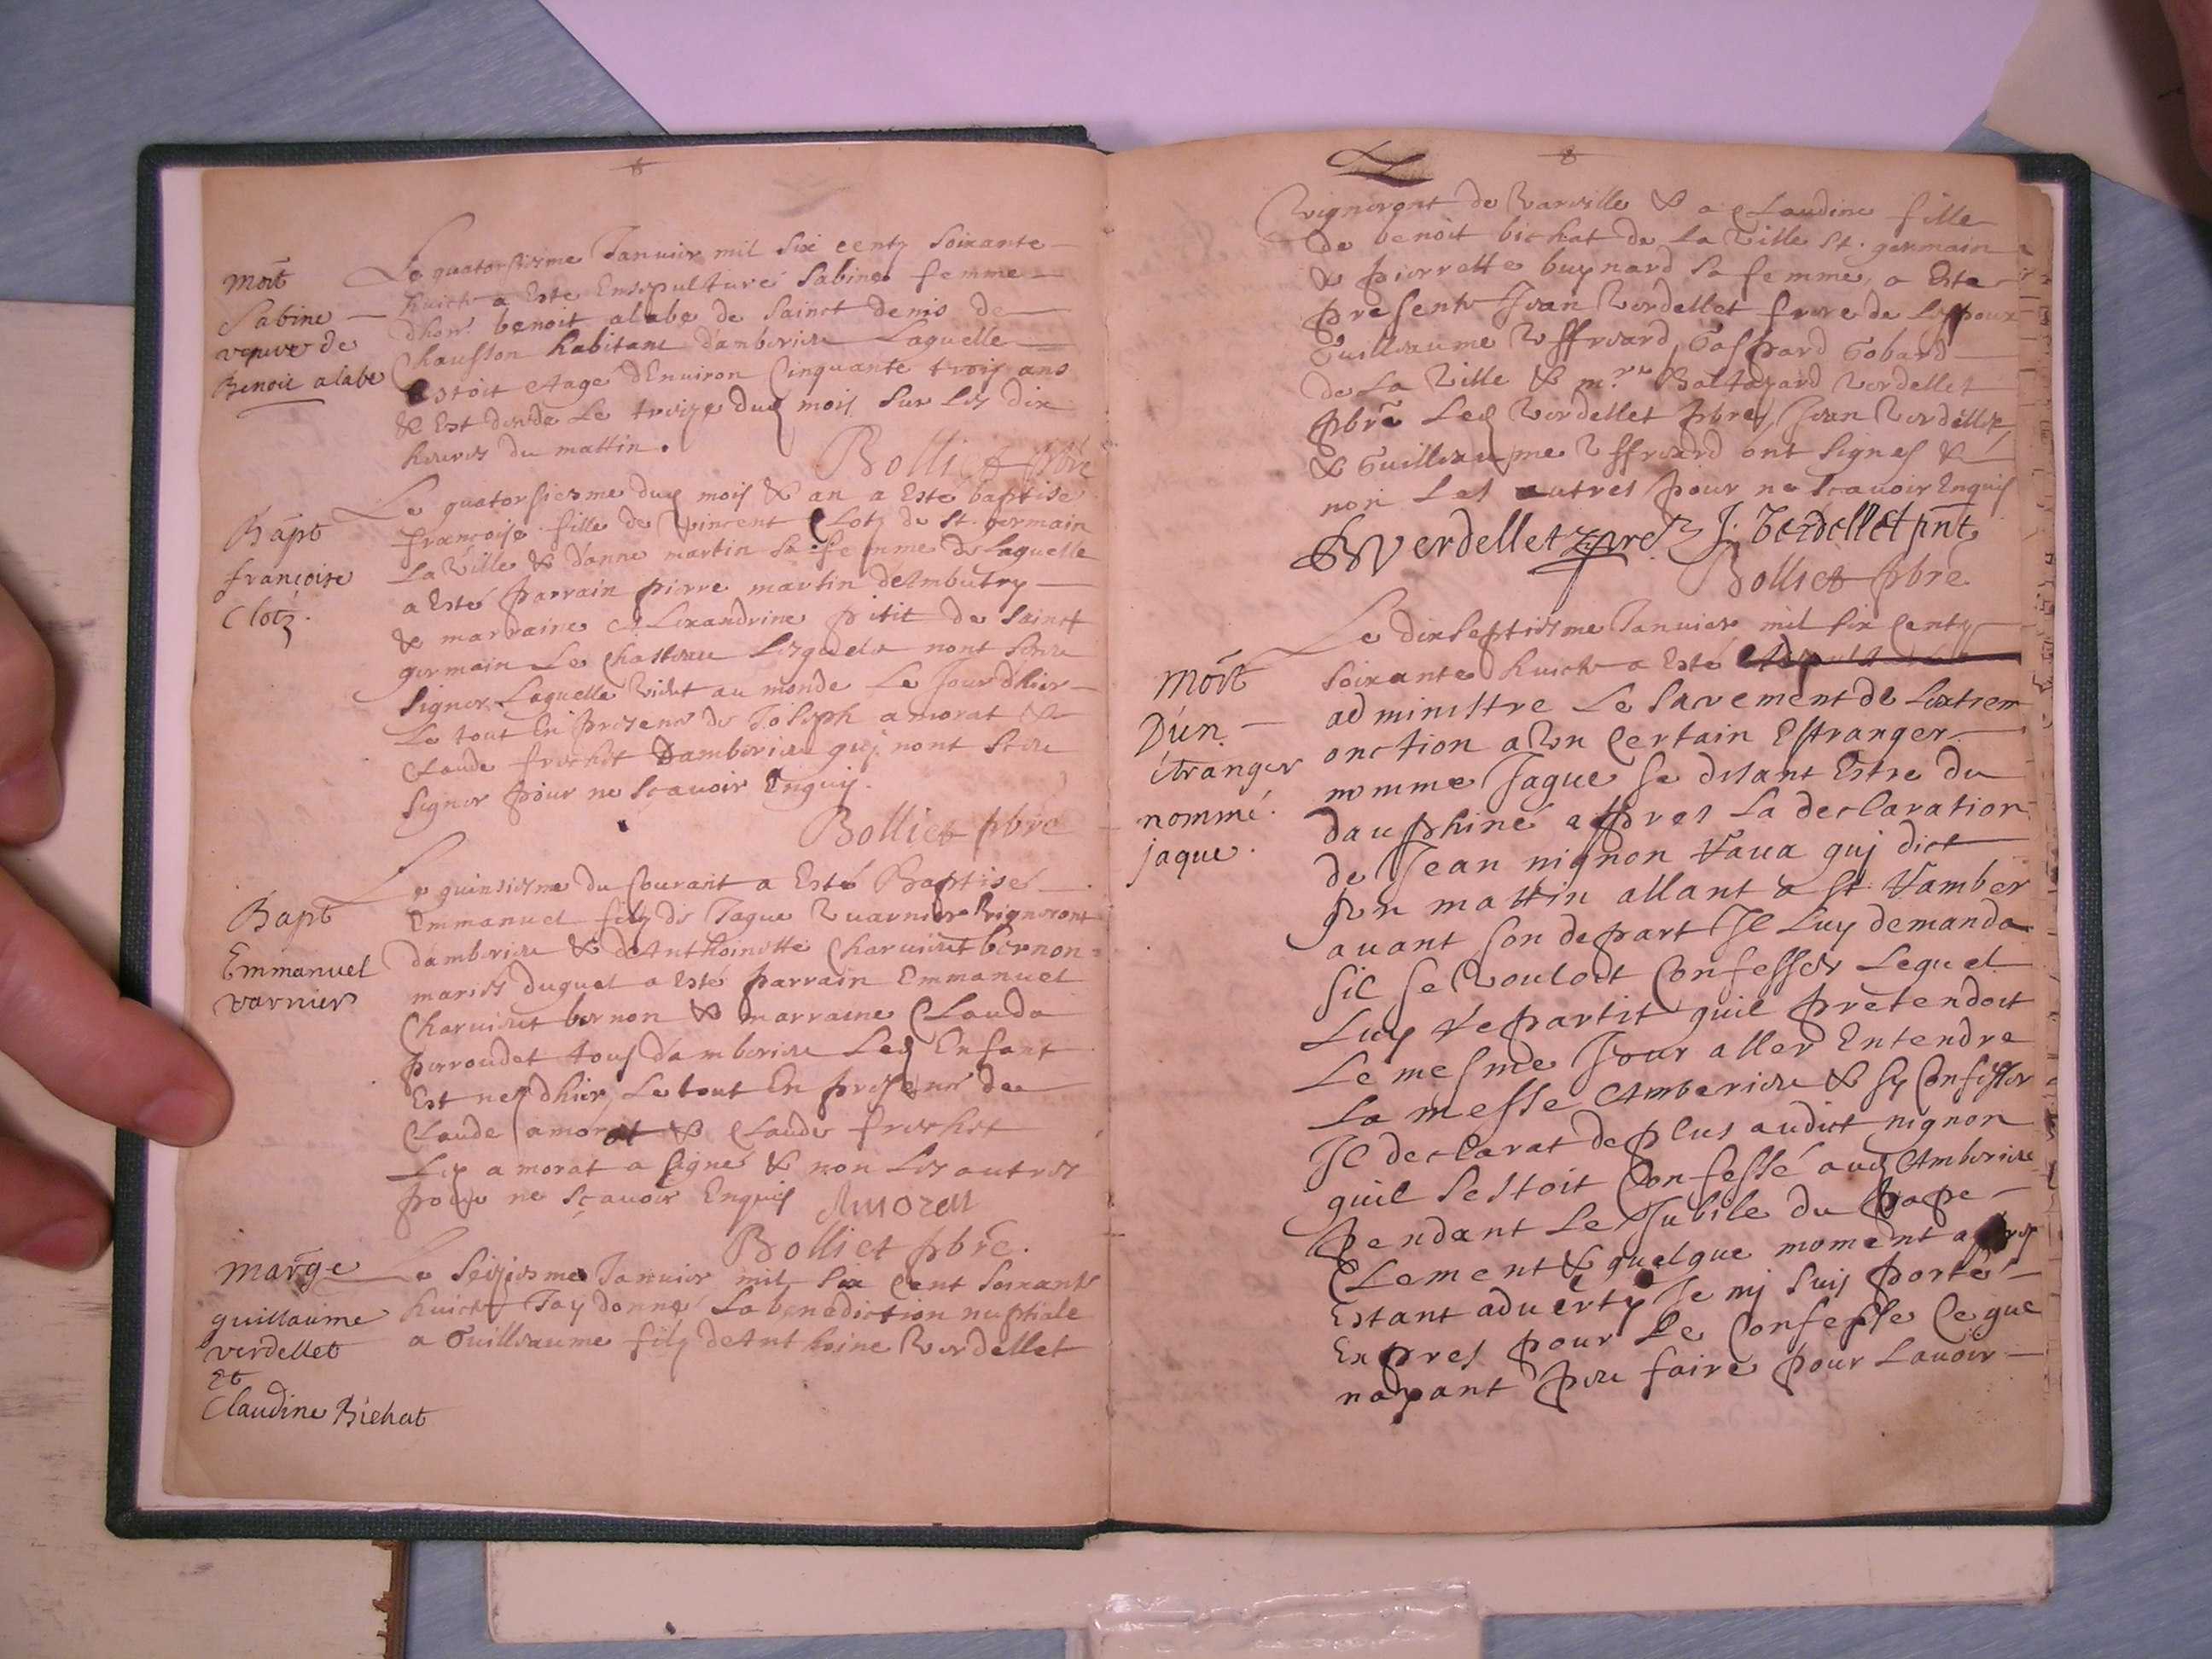 Mort
Sabine
vefve de
Benoit alabe
Le quatorsiesme Januier mil six centz soixante
huict a Esté Ensepulturé Sabine femme
dhon. benoit alabe de Sainct denis de
Chausson habitant damberieu Laquelle
Estoit Aagé dEnuiron Cinquante trois ans
& Est decede Le treize dud mois Sur Les dix
heures du mattin.
Bolliet pbre
Bapt
françoise
Clotz.
Le quatorsiesme dud mois & an a Esté baptise
françoise fille de Vincent Clotz de St. germain
La Ville & d'anne martin Sa femme de Laquelle
a Esté parrain pierre martin
& marraine Alexandrine petit de Sainct
germain Le Chasteau Lesquels nont Sceu
Signer Laquelle vint au monde Le Jour dhier
Le tout En presence de Joseph amorat &
Claude frechet Damberieu quj nont Sceu
Signer pour ne Scauoir Enquis.
Bolliet pbre
Bapt
Emmanuel
varnier
Le quinsiesme du Courant a Esté Baptisé
Emmanuel filz de Jaque Vuarnier Vigneront
damberieu & deAnthoinette Charuiret bernon
mariés duquel a Esté parrain Emmanuel
Charuiret bernon & marraine Clauda
perroudet tous d'amberieu Led Enfant
Est nez dhier Le tout En presence de
Claude amorat & Claude frechet
Led amorat a Signé & non Les autres
pour ne Sçauoir Enquis Amorat
Bolliet pbre.
marge
guillaume
verdellet
Et
Claudine Bichat
Le Seiziesme Januier mil Six Cent Soixante
huict Jay donné La benediction nuptiale
a Guilleaume filz deAnthoine Verdellet
Vigneront de Vareille & a Claudine fille
de benoit bichat de La Ville St. germain
& pierrette buynard Sa femme, a Esta
present Jean Verdellet frere de Lespoux
Guilleaume Uffreard, Gaspard Gobard
de La Ville & m.re Baltazard Verdellet
pbre Led Verdellet pbre, Jean Verdellet,
& Guilleaume Uffreard ont Signes &
non Les autres pour ne Scauoir Enquis
BVerdellet pre J. Verdellet pnt
Bolliet pbre
Mort
D'un
étranger
nommé
jaque.
Le dixseptiesme Januier mil six Centz
Soixante huict a Esté
administre Le Sacrement de Lextrem
onction a Un Certain Estranger
nomme Jaque Se disant Estre du
dauphiné appres La declaration
de Jean nignon Vaua quj dict
qun mattin allant a St. Vamber
auant Son depart Il Luy demanda
Sil Se Vouloit Confesser Lequel
Luy repartit quil pretendoit
Le mesme Jour aller Entendre
La messe Amberieu & Sy Confesser
Il declarat de plus audict nignon
quil Sestoit Confessé aud Amberieu
pendant Le Jubile du pape
Clement & quelque moment apres
Estant aduerty Je mj Suis porté
Expres pour Le Confesse Ce que
nayant peu faire pour Lauoir